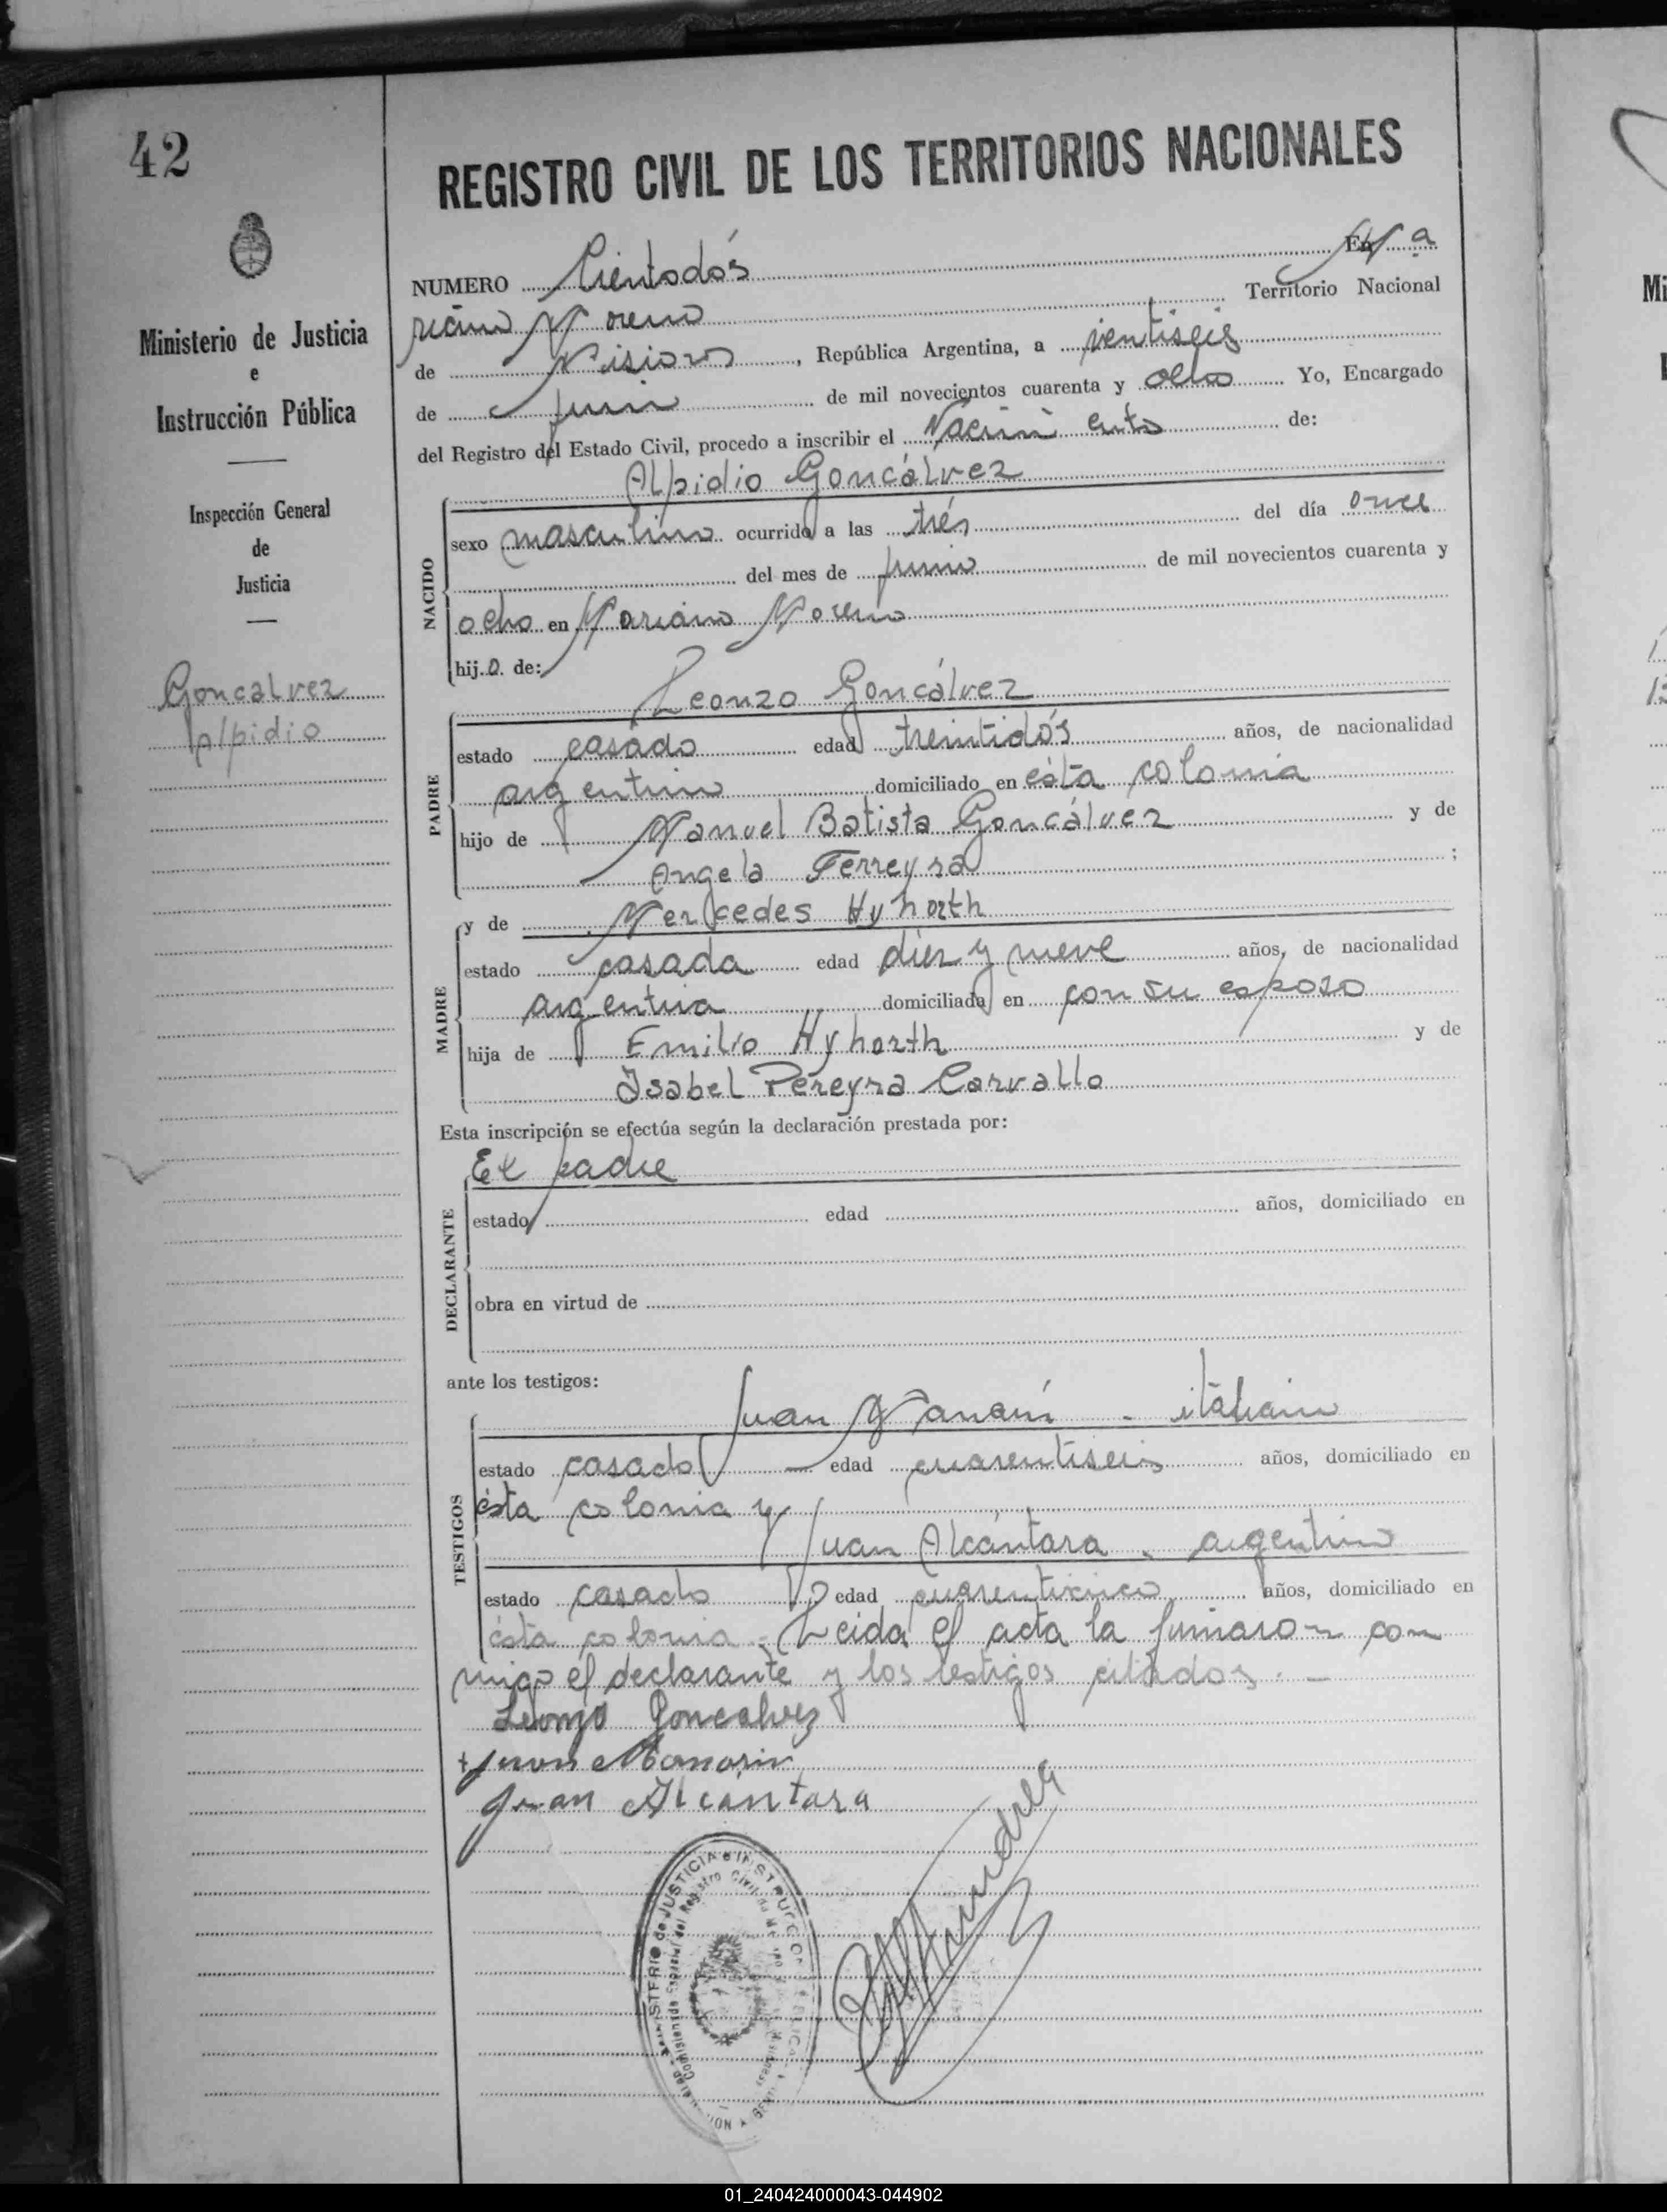 42
REGISTRO CIVIL DE LOS TERRITORIOS NACIONALES
NUMERO Cientodós En Ma
riano Moreno Territorio Nacional
de Misiones, República Argentina, a ventiseis
de junio de mil novecientos cuarenta y ocho Yo, Encargado
del Registro del Estado Civil, procedo a inscribir el Nacimiento de:
Alpidio Goncálvez
Ministerio de Justicia
e
Instrucción Pública
Inspección General
de
Justicia
Goncalvez
Alpidio
NACIDO
sexo masculino ocurrido a las trés del día once
del mes de junio de mil novecientos cuarenta y
ocho en Mariano Moreno
hijo de:
Leonzo Goncálvez
PADRE
estado casado edad treintidós años, de nacionalidad
argentino domiciliado en ésta colonia
hijo de Manuel Batista Goncálvez y de
Angela Ferreyra ;
MADRE
y de Mercedes Hyhorth
estado casada edad diez y nueve años, de nacionalidad
argentina domiciliada en con su esposo
hija de Emilio Hyhorth y de
Isabel Pereyra Carvallo
Esta inscripción se efectúa según la declaración prestada por:
El padre
DECLARANTE
estado edad años, domiciliado en
obra en virtud de
ante los testigos:
TESTIGOS
Juan Manarin - italiano
estado casado - edad cuarentiseis años, domiciliado en
ésta colonia y
Juan Alcántara - argentino
estado casado edad cuarenticinco años, domiciliado en
ésta colonia. Leida el acta la firmaron con
migo el declarante y los testigos citados. -
Leonzo Goncalvez
+ Juan Manarin
Juan Alcántara
MINISTERIO de JUSTICIA e INSTRUCCION PUBLICA
01_240424000043-044902